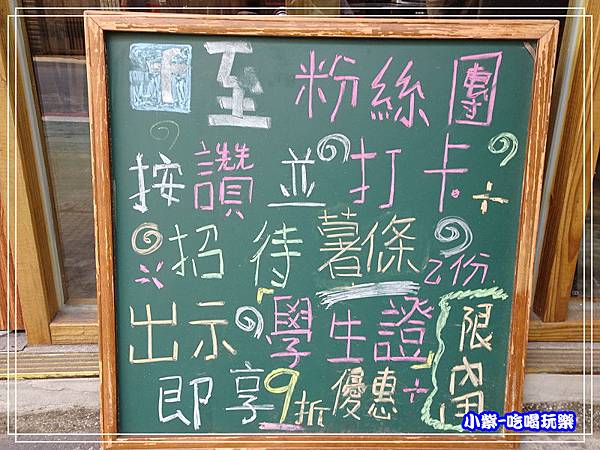 f至粉絲團
按讚並打卡
招待薯條乙份
出示「學生證」
即享9折優惠
限內用
小紫-吃喝玩樂